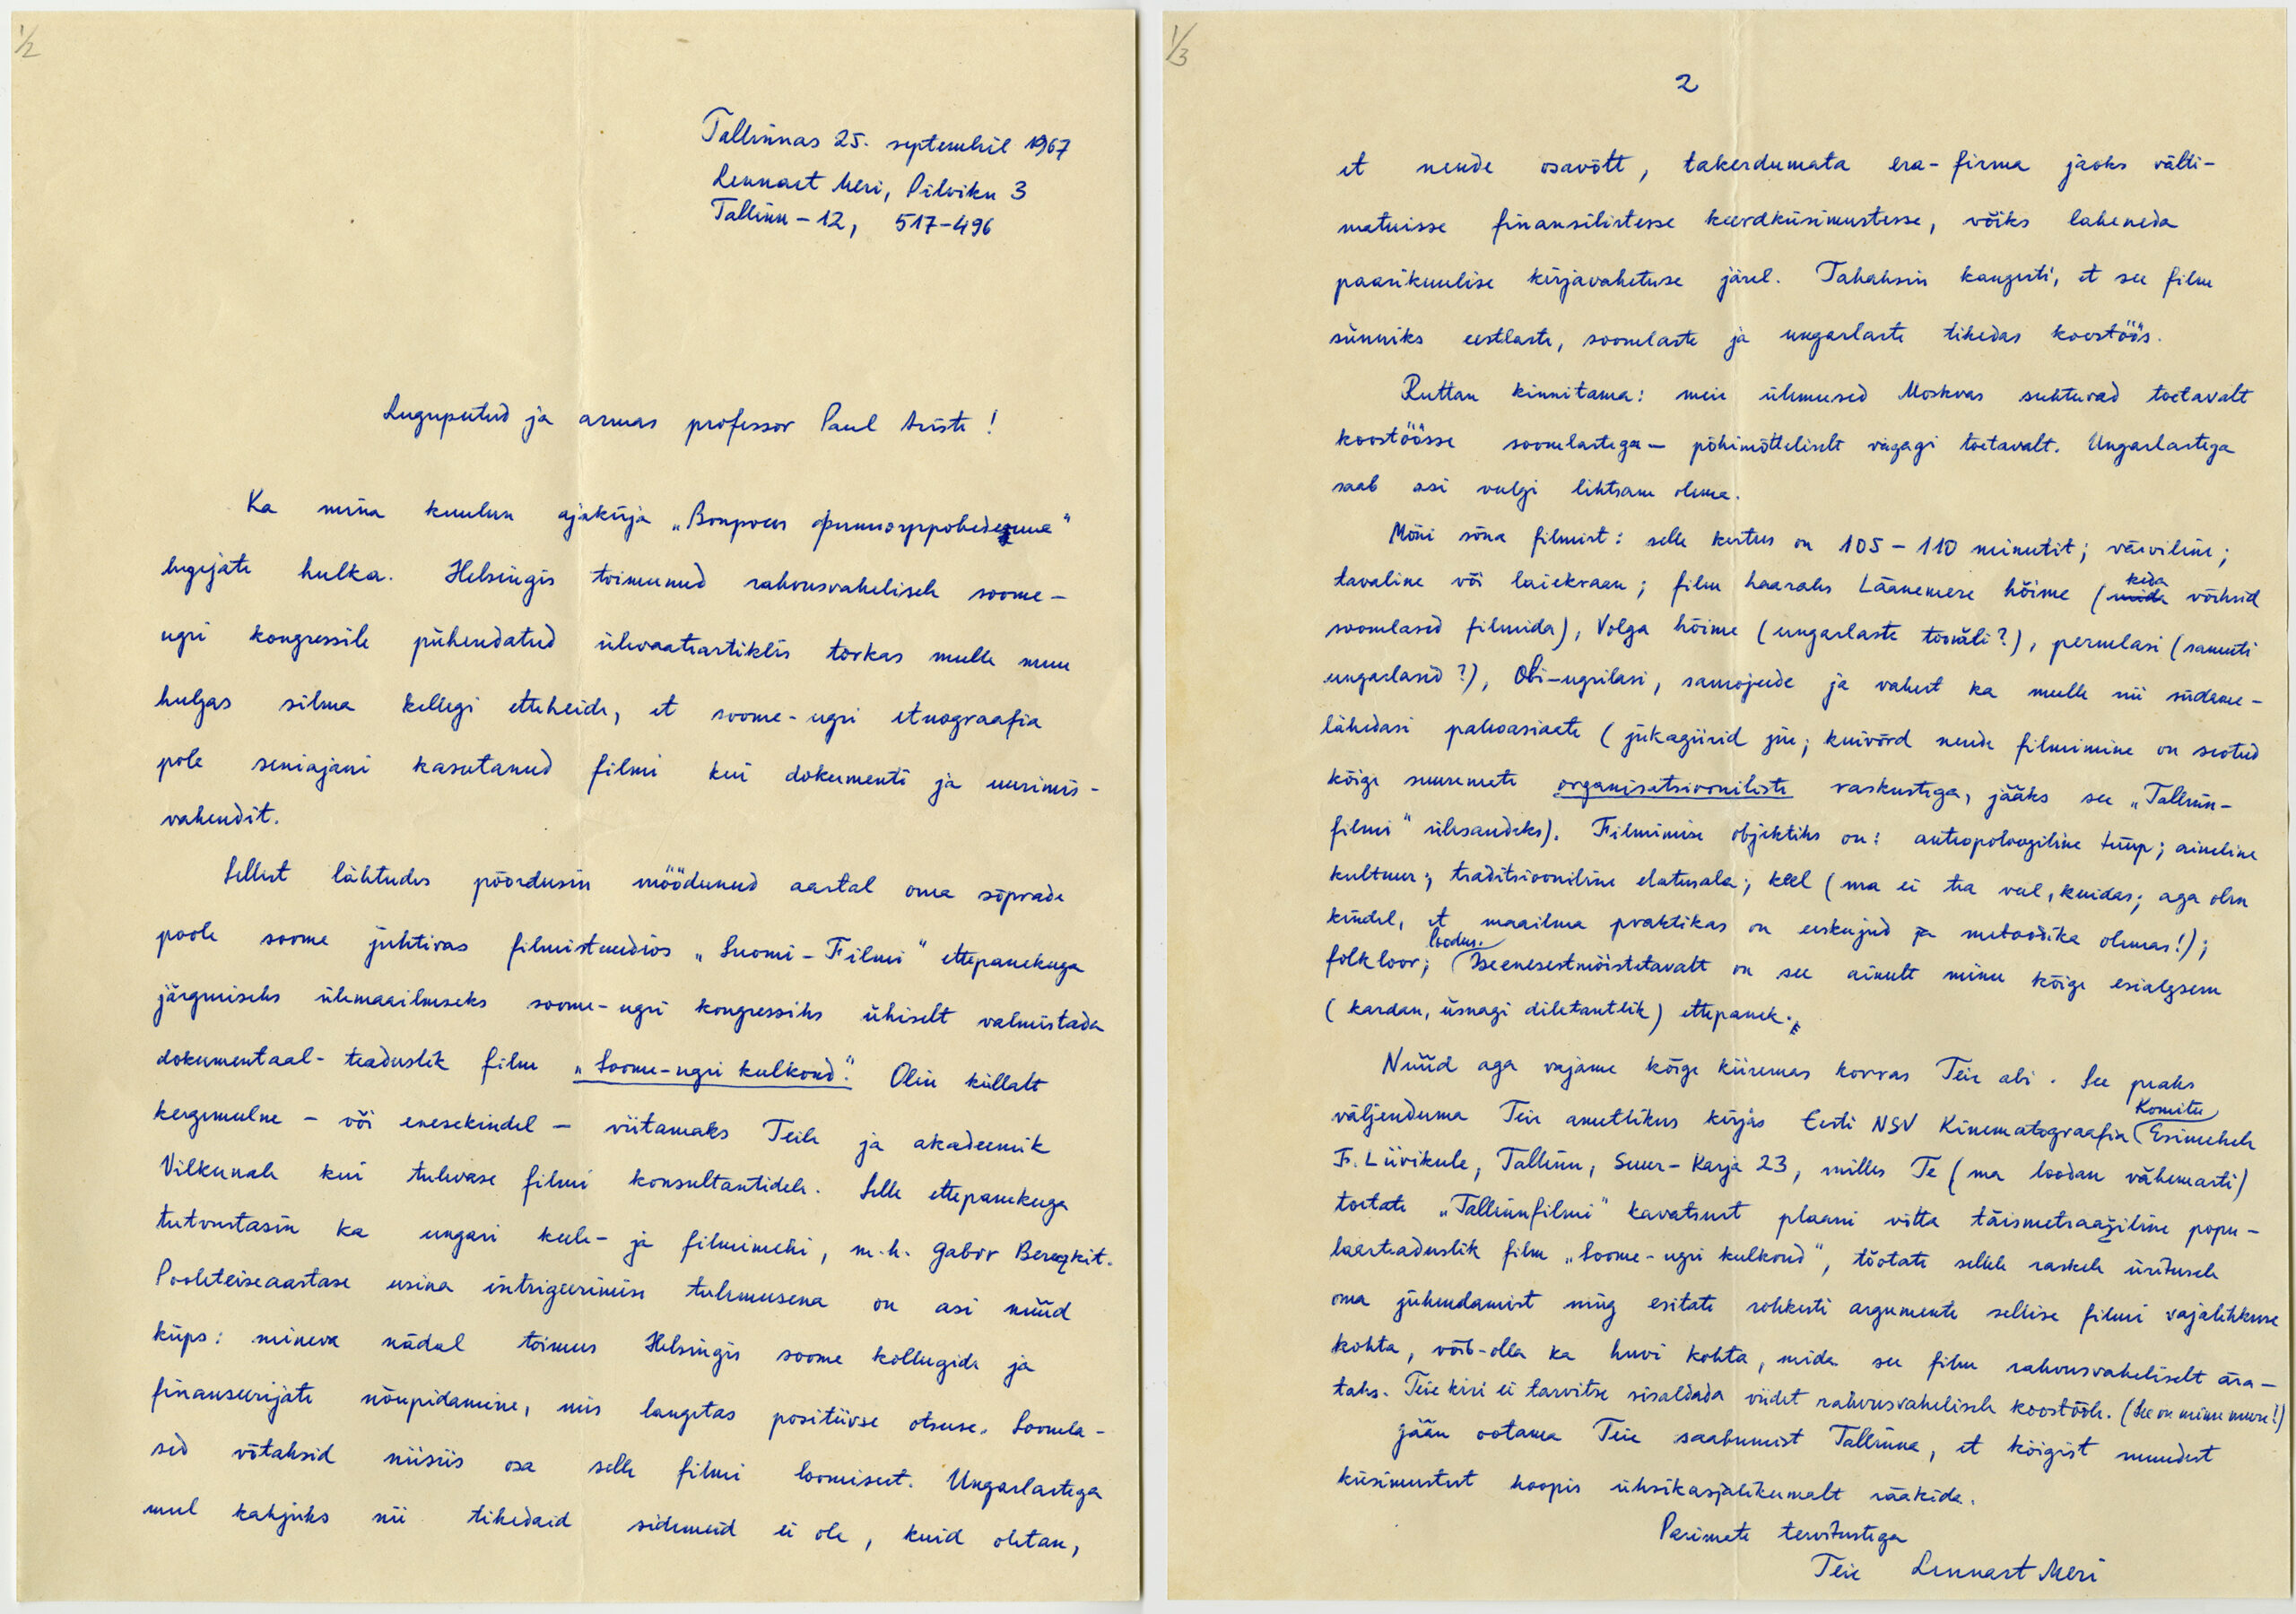 1/2
Tallinnas 25. septembril 1967
Lennart Meri, Pilviku 3
Tallinn – 12, 517-496
Lugupeetud ja armas professor Paul Ariste!
Ka mina kuulun ajakirja „Вопросы финноугроведения“
lugejate hulka. Helsingis toimunud rahvusvahelisele soome-
ugri kongressile pühendatud ülevaateartiklis torkas mulle muu
hulgas silma kellegi etteheide, et soome-ugri etnograafia
pole seniajani kasutanud filmi kui dokumenti ja uurimis-
vahendit.
Sellest lähtudes pöördusin möödunud aastal oma sõprade
poole soome juhtivas filmistuudios „Suomi-Filmi“ ettepanekuga
järgmiseks ülemaailmseks soome-ugri kongressiks ühiselt valmistada
dokumentaal-teaduslik film „Soome-ugri keelkond“. Olin küllalt
kergemeelne – või enesekindel – viitamaks Teile ja akadeemik
Vilkunale kui tulevase filmi konsultantidele. Selle ettepanekuga
tutvustasin ka ungari keele- ja filmimehi, m.h. Gabor Bereczkit.
Pooleteiseaastase usina intrigeerimise tulemusena on asi nüüd
küps: mineva nädal toimus Helsingis soome kolleegide ja
finanseerijate nõupidamine, mis langetas positiivse otsuse. Soomla-
sed võtaksid niisiis osa selle filmi loomisest. Ungarlastega
mul kahjuks nii tihedaid sidemeid ei ole, kuid oletan,
1/3
2
et nende osavõtt, takerdumata era-firma jaoks välti-
matuisse finansilistesse keerdküsimustesse, võiks laheneda
paarikuulise kirjavahetuse järel. Tahaksin kangesti, et see film
sünniks eestlaste, soomlaste ja ungarlaste tihedas koostöös.
Ruttan kinnitama: meie ülemused Moskvas suhtuvad toetavalt
koostöösse soomlastega – põhimõtteliselt vägagi toetavalt. Ungarlastega
saab asi veelgi lihtsam olema.
Mõni sõna filmist: selle kestus on 105 – 110 minutit; värviline;
tavaline või laiekraan; film haaraks Läänemere hõime (keda võiksid
soomlased filmida), Volga hõime (ungarlaste tööväli?), permlasi (samuti
ungarlased?), Obi-ugrilasi, samojeede ja vahest ka mulle nii südame-
lähedasi paleoasiaate (jukagiirid jne; kuivõrd nende filmimine on seotud
kõige suuremate organisatsiooniliste raskustega, jääks see „Tallinn-
filmi“ ülesandeks). Filmimise objektiks on: antropoloogiline tüüp; aineline
kultuur; traditsiooniline elatusala; keel (ma ei tea veel, kuidas; aga olen
kindel, et maailma praktikas on eeskujud ja metoodika olemas!);
folkloor; loodus. Iseenesestmõistetavalt on see ainult minu kõige esialgsem
(kardan, üsnagi diletantlik) ettepanek.
Nüüd aga vajame kõige kiiremas korras Teie abi. See peaks
väljenduma Teie ametlikus kirjas Eesti NSV Kinematograafia Komitee Esimehele
F. Liivikule, Tallinn, Suur-Karja 23, milles Te (ma loodan vähemasti)
toetate „Tallinnfilmi“ kavatsust plaani võtta täismetraažiline popu-
laarteaduslik film „Soome-ugri keelkond“, tõotate sellele raskele üritusele
oma juhendamist ning esitate rohkesti argumente sellise filmi vajalikkuse
kohta, võib-olla ka huvi kohta, mida see film rahvusvaheliselt ära-
taks. Teie kiri ei tarvitse sisaldada viidet rahvusvahelisele koostööle. (See on minu mure!)
Jään ootama Teie saabumist Tallinna, et kõigist muudest
küsimustest hoopis üksikasjalikumalt rääkida.
Parimate tervitustega
Teie Lennart Meri